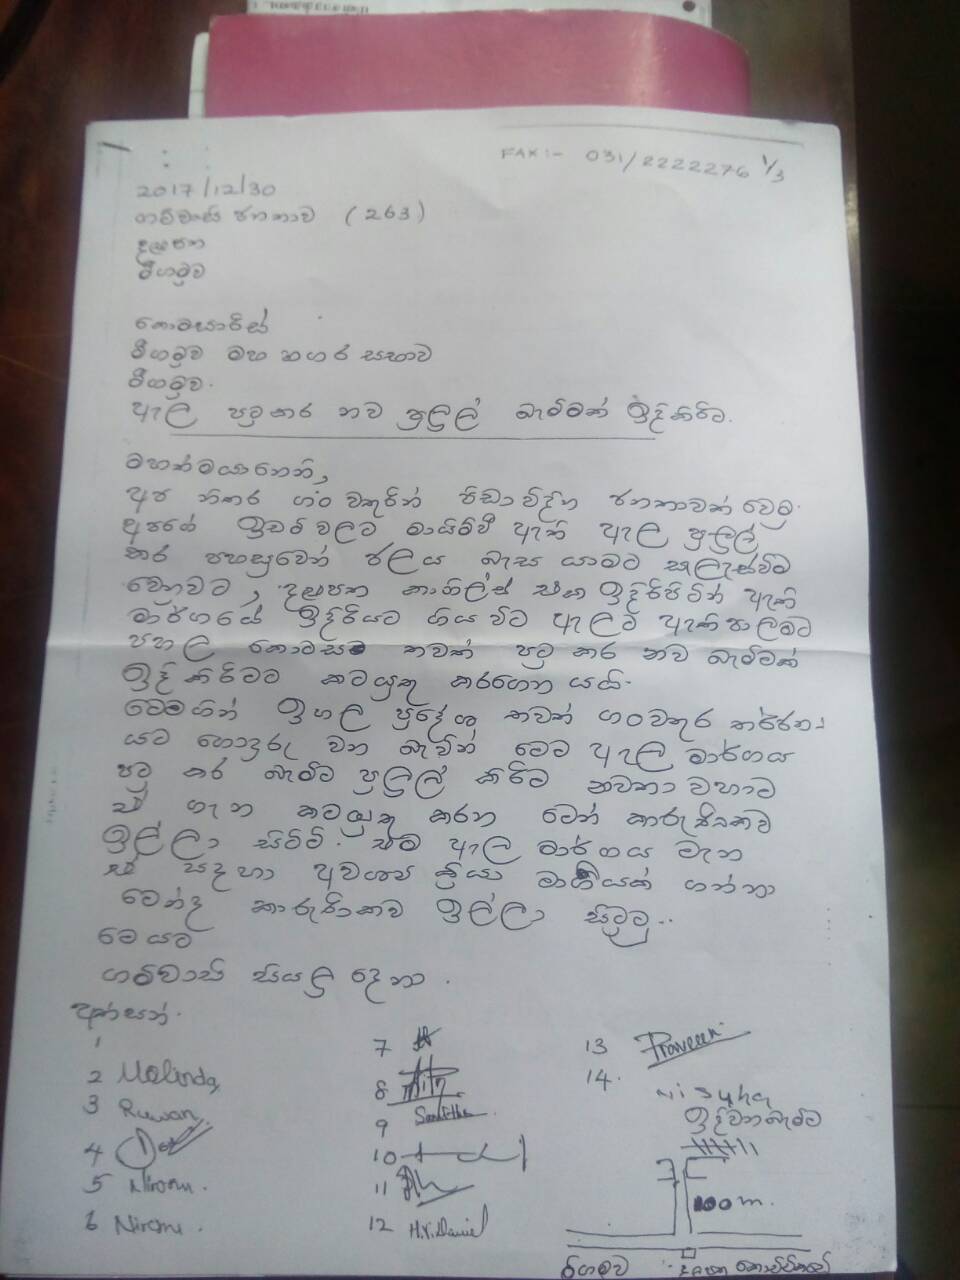 FAX :- 031/2222276 1/3
2017/12/30
ගම්වැසි ජනතාව (263)
දළුපත
මීගමුව
කොමසාරිස්
මීගමුව මහ නගර සභාව
මීගමුව.
ඇල පටුකර නව පුලුල් බැම්මක් ඉදිකිරීම.
මහත්මයාණෙනි,
අප නිතර ගං වතුරින් පීඩා විදින ජනතාවක් වෙමු.
අපගේ ඉඩම් වලට මායිම්ව ඇති ඇල පුලුල්
කර පහසුවෙන් ජලය බැස යාමට සැලැස්වීම
වෙනුවට, දළුපත කාගිල්ස් එක ඉදිරිපිටින් ඇති
මාර්ගයේ ඉදිරියට ගිය විට ඇලට ඇති පාලමට
පහල කොටස තවත් පටු කර නව බැම්මක්
ඉදි කිරීමට කටයුතු කරගෙන යයි.
මෙමගින් ඉහල ප්‍රදේශ තවත් ගංවතුර තර්ජන
යට ගොදුරු වන බැවින් මෙම ඇල මාර්ගය
පටු කර බැම්ම පුලුල් කිරීම නවතා වහාම
ඒ ගැන කටයුතු කරන මෙන් කාරුණිකව
ඉල්ලා සිටිමි. එම ඇල මාර්ගය මැන
ඒ සදහා අවශ්‍ය ක්‍රියා මාර්ගයක් ගන්නා
මෙන්ද කාරුණිකව ඉල්ලා සිටිමු..
මෙයට
ගම්වාසී සියලු දෙනා.
අත්සන්.
1
2 Malinda
3 Ruwan
4
5 Niroom.
6 Niromi.
7
8
9 Sanditha
10
11
12 H.V. Daniel
13 Praveen
14.
ඉදිවන බැම්ම
100m.
මීගමුව
දළුපත